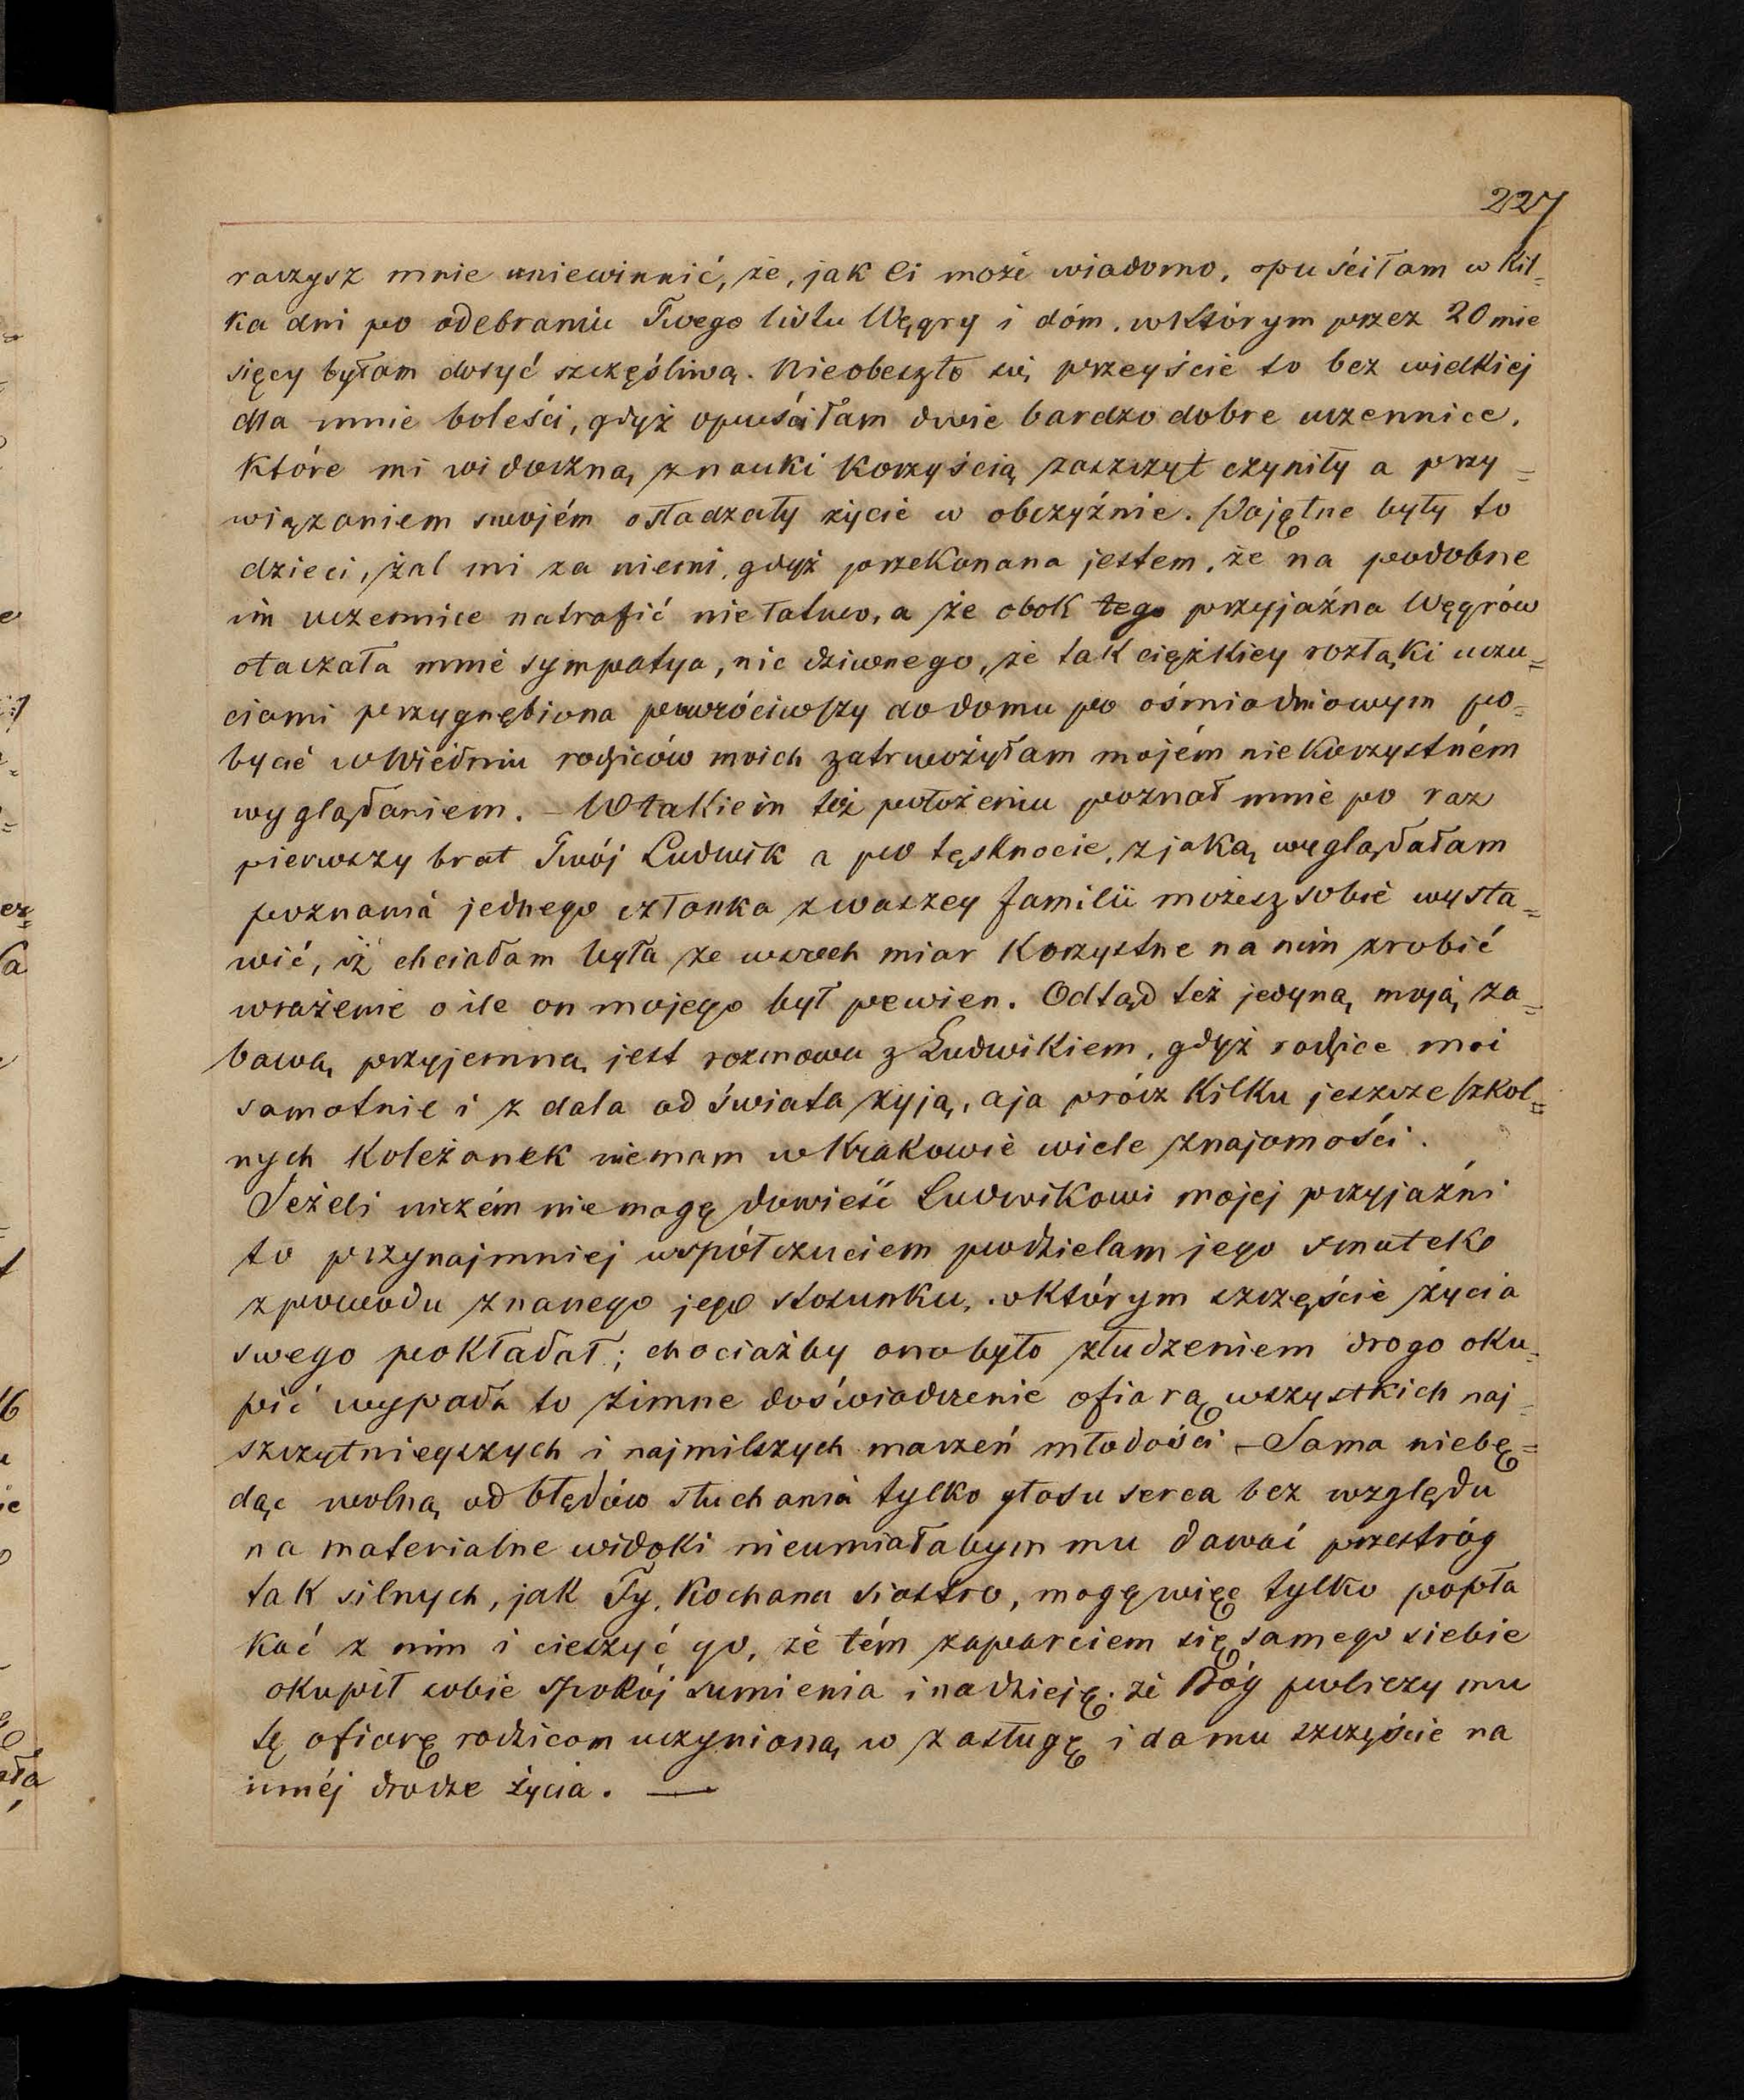 227
raczysz mnie uniewinnić, że, jak Ci może wiadomo, opuściłam w kil-
ka dni po odebraniu Twego listu Węgry i dóm, w którym przez 20 mie
sięcy byłam dosyć szczęśliwą. Nieobeszło się przeyście to bez wielkiej
dla mnie boleści, gdyż opuściłam dwie bardzo dobre uczennice,
które mi widoczną z nauki korzyścią zaszczyt czyniły a przy=
wiązaniem swojém osładzały życie w obczyźnie. Pojętne były to
dzieci, żal mi za niemi, gdyż przekonana jestem, że na podobne
im uczennice natrafić niełatwo, a że obok tego przyjaźna Węgrów
otaczała mnie sympatya, nic dziwnego, że tak ciężkiey rozłąki uczu=
ciami przygnębiona powróciwszy do domu po ośmiodniowym po=
bycie w Wiedniu rodziców moich zatrwożyłam mojém niekorzystném
wyglądaniem. – W takiem też położeniu poznał mnie po raz
pierwszy brat Twój Ludwik a po tęsknocie, z jaką wyglądałam
poznania jednego członka z waszey familii możesz sobie wysta=
wić, iż chciałam była ze wszech miar korzystne na nim zrobić
wrażenie o ile on mojego był pewien. Odtąd też jedyną moją za=
bawą przyjemną jest rozmowa z Ludwikiem, gdyż rodzice moi
samotnie i z dala od świata żyją, a ja prócz kilku jeszcze szkol=
nych koleżanek niemam w Krakowie wiele znajomości.
Jeżeli niczém nie mogę dowieść Ludwikowi mojej przyjaźni
to przynajmniej współczuciem podzielam jego smutek
z powodu znanego jego stosunku, w którym szczęście życia
swego pokładał; chociażby ono było złudzeniem drogo oku=
pić wypada to zimne doświadczenie ofiarą wszystkich naj=
szczytnieyszych i najmilszych marzeń młodości – Sama niebę=
dąc wolną od błędów słuchania tylko głosu serca bez względu
na materialne widoki nieumiałabym mu dawać przestróg
tak silnych, jak Ty, kochana siostro, mogę więc tylko popła
kać z nim i cieszyć go, że tém zaparciem się samego siebie
okupił sobie spokój sumienia i nadzieję, że Bóg policzy mu
tę ofiarę rodzicom uczynioną w zasługę i da mu szczęście na
innéj drodze życia. —